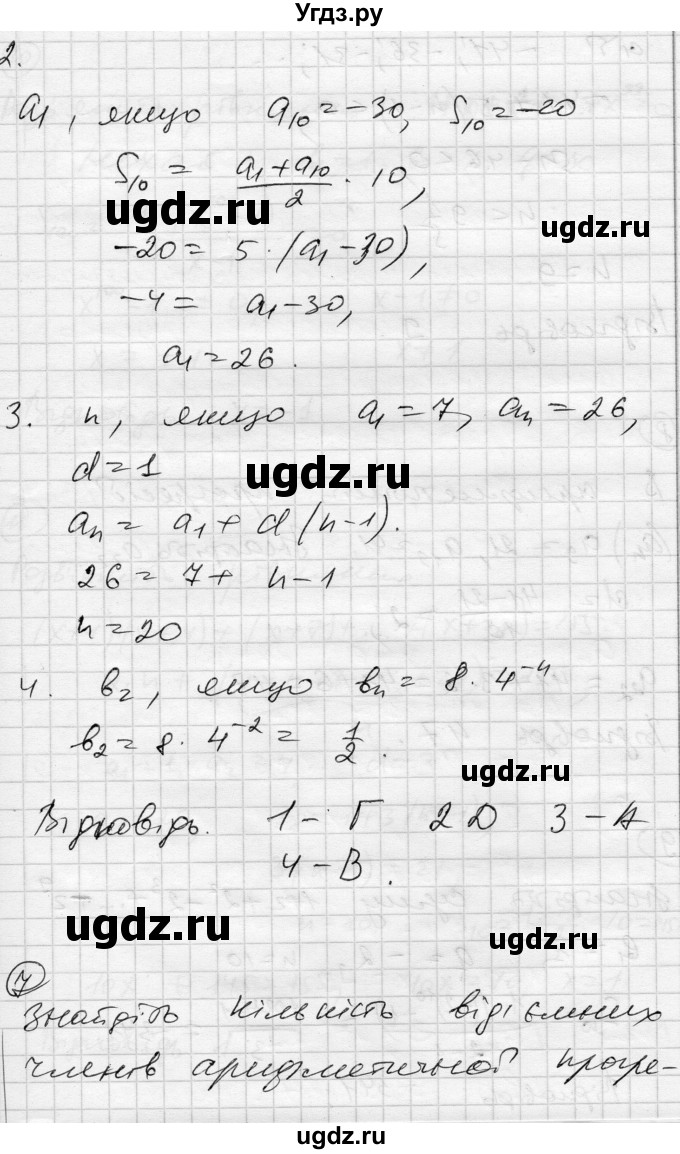 Угдз.ру
2.
a₁, якщо a₁₀ = -30, S₁₀ = -20
S₁₀ = (a₁ + a₁₀)/2 · 10,
ugdz.ru
ugdz.ru
-20 = 5 · (a₁ - 30),
-4 = a₁ - 30,
a₁ = 26.
3. n, якщо a₁ = 7, aₙ = 26,
d = 1
ugdz.ru
aₙ = a₁ + d (n-1).
26 = 7 + n - 1
n = 20
4. b₂, якщо bₙ = 8 · 4⁻⁴
b₂ = 8 · 4⁻² = 1/2.
ugdz.ru
Відповідь. 1 - Г 2 D 3 - А
4 - В.
ugdz.ru
ugdz.ru
7
Знайдіть кількість від'ємних
членів арифметичної прогре-
ugdz.ru